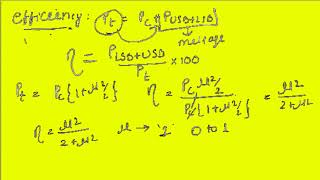 efficiency: Pt = Pc+(PUSB+LSB)
message
η = PLSB+USB / Pt × 100
Pt = Pc{1+μ²/2} η = Pc μ²/2 / Pc{1+μ²/2} = μ² / 2+μ²
η = μ² / 2+μ² μ → '2' 0 to 1